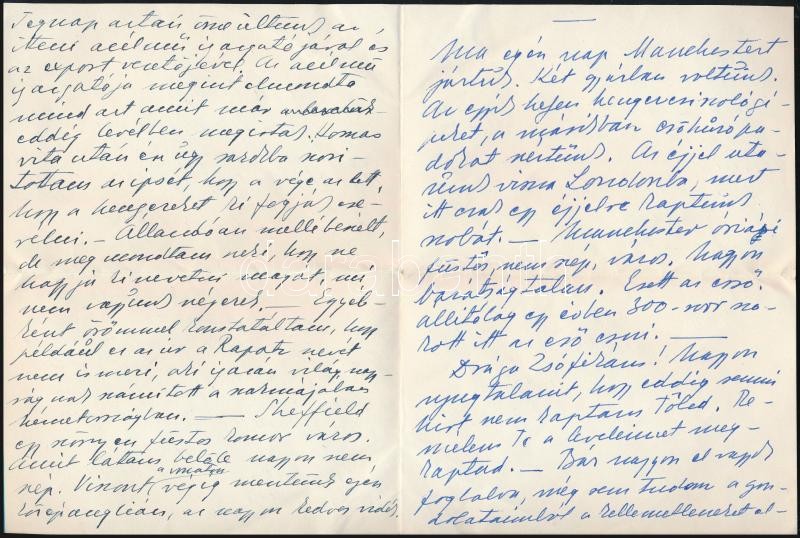 Tegnap aztán összeültünk az
itteni acélmű igazgatójával és
az export vezetőjével. Az acélmű
igazgatója megint elmondta
mind azt amit már
eddig levélben megírtak. Hosszas
vita után én úgy sarokba szorí-
tottam az ipsét, hogy a vége az lett,
hogy a hengereket ki fogják cse-
rélni. – Állandóan mellébeszélt,
de megmondtam neki, hogy ne
hagyja kinevetni magát, mi
nem vagyunk négerek. — Egyéb-
ként örömmel konstatáltam, hogy
például ez az úr a Rapatz nevét
nem ismeri, aki igazán világ nagy-
ságnak számított a szakmájában
Németországban. — Sheffield
egy könnyen füstös komor város.
Amit láttam belőle nagyon nem
szép. Viszont a vonaton végig mentünk egész
Középanglián, az nagyon kedves vidék.
—
Ma egész nap Manchestert
jártuk. Két gyárban voltunk.
Az egyik helyen hengercsiszológé-
peket, a másikban csőhúzópa-
dokat néztünk. Az éjjel uta-
zunk vissza Londonba, mert
itt csak egy éjjelre kaptunk
szobát. — Manchester óriási
füstös, nem szép, város. Nagyon
barátságtalan. Esett az eső.
Állítólag egy évben 300-szor szo-
kott itt az eső esni. —
Drága Zsófikám! Nagyon
nyugtalanít, hogy eddig semmi
hírt nem kaptam Tőled. Re-
mélem Te a leveleimet meg-
kaptad. — Bár nagyon el vagyok
foglalva, még sem tudom a gon-
dolataimból a kellemetleneket el-
darabanth